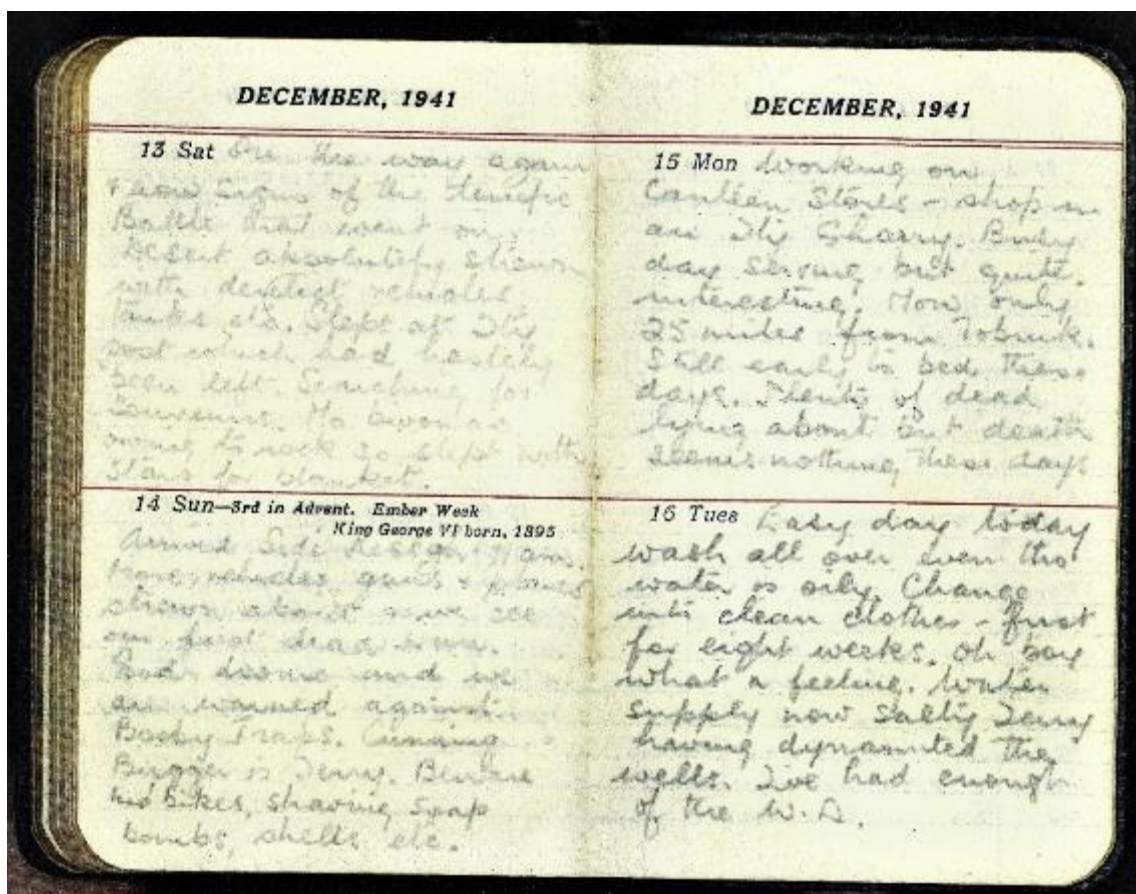 DECEMBER, 1941
13 Sat On the way again
& saw signs of the terrific
Battle that went on.
Desert absolutely strewn
with derelict vehicles
tanks etc. Slept at Ity
post which had hastely
been left. Searching for
Souvenirs. No
owing to rock so slept with
Stars for blanket.
14 Sun—3rd in Advent. Ember Week
King George VI born, 1895
Arrived Sidi 11 am.
More vehicles guns & planes
strewn about & we see
our first dead
and we
are warned against
Booby Traps. Cunning
Bugger is Jerry. Beware
his bikes, shaving soap
bombs, shells etc.
DECEMBER, 1941
15 Mon Working on
Canteen Stores - shop in
an Ity Gharry. Busy
day serving but quite
interesting. Now only
25 miles from Tobruk.
Still early to bed these
days. Plenty of dead
lying about but death
seems nothing these days
16 Tues Easy day today
wash all over even tho
water is oily. Change
into clean clothes - first
for eight weeks. Oh boy
what a feeling. Water
supply now salty Jerry
having dynamited the
wells. I've had enough
of the W.D.